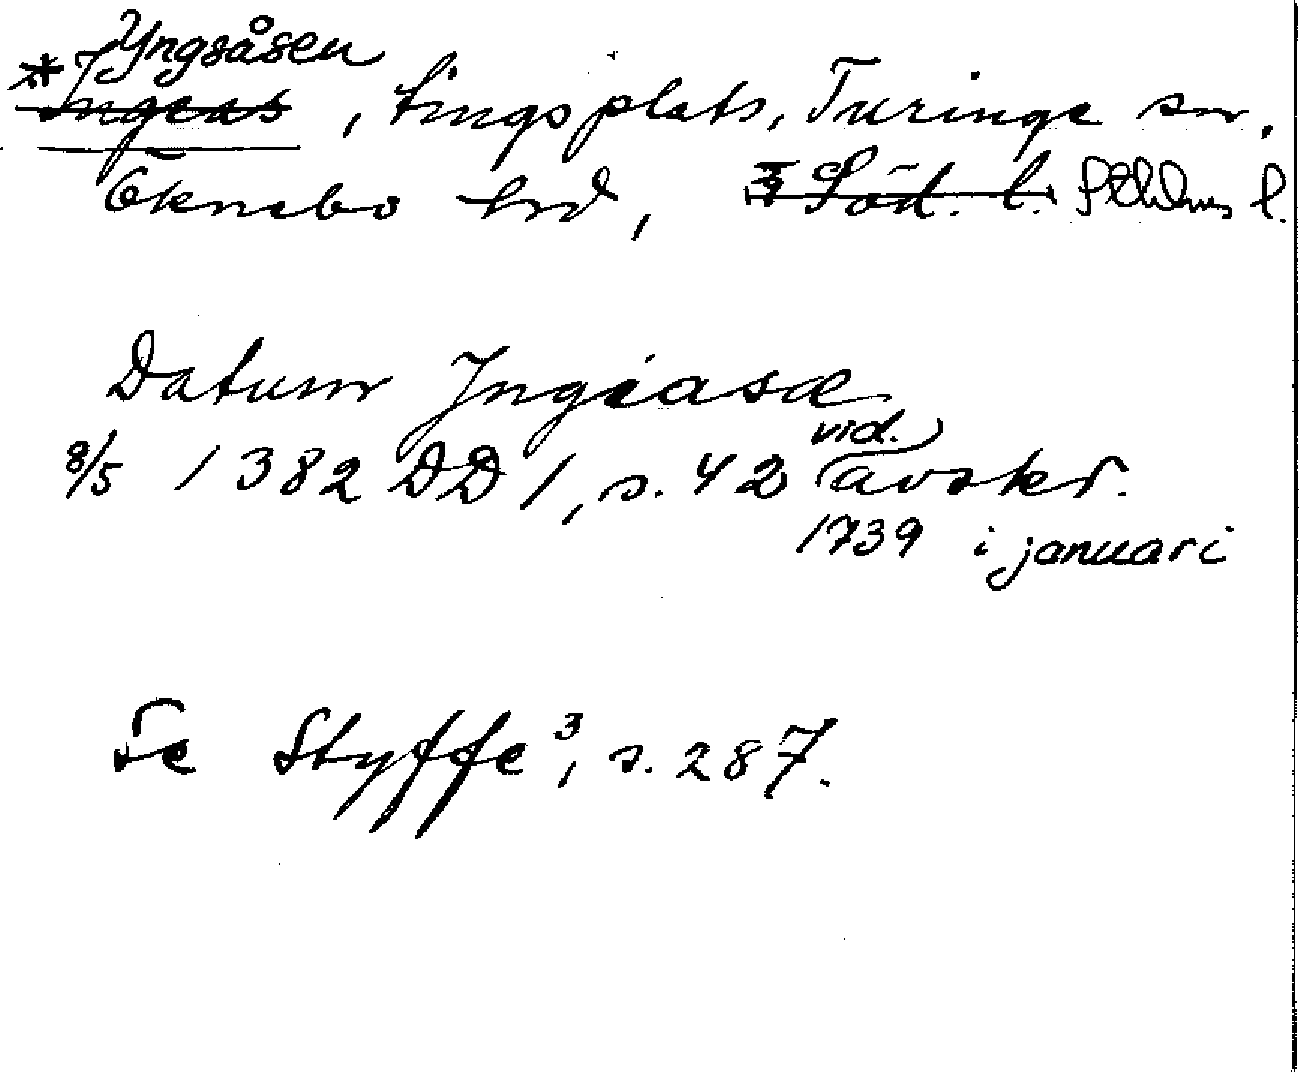 Yngsåsen
* Ingeas, tingsplats, Turinge sn.
Öknebo hrd, Söd. l. Sthlms l.
Datum Jngiasæ
8/5 1382 DD 1, s. 42 vid. avskr.
1739 i januari
Se Styffe³, s. 287.